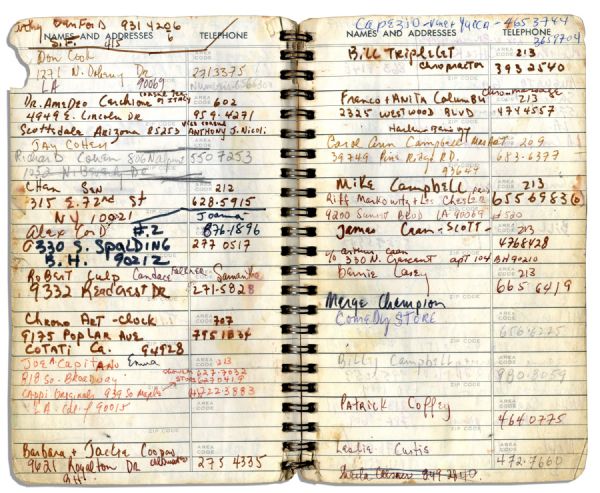 Danford 931 4206
S.F. 415
NAMES AND ADDRESSES TELEPHONE
Don Cook
1271 N. Doheny Dr 2713375
LA 90069
Dr. Amedeo Cerchione 602
4949 E. Lincoln Dr 959-4271
Scottsdale Arizona 85253 ANTHONY J. Nicoli
JAY COHEN
Richard Cohen 5507253
1252 N. Beverly Dr
CHAN SEN 212
315 E. 72nd St 628-5915
NY 10021 Joanna
Alex Cord #2 876-1896
330 S. SPALDING 277 0517
B.H. 90212
RoBert Culp Candace Samantha
9332 Readcrest DR 271-5828
Chrono Art-clock 707
9175 Poplar Ave 795 1834
COTATI Ca. 94928
Joe Capitano Emma 213
818 So. Broadway
Cappi Originals
LA. Calif 90015
Barbara + Jackie Cooper
9621 Royalton Dr 275 4335
B.H.
CAPEZIO - Vine + Yucca - 465 3744
NAMES AND ADDRESSES TELEPHONE
Bill Triplett 213
chiropractor 393 2540
Franco + Anita Columbu 213
2325 WESTWOOD BLVD 4744557
Carol Ann Campbell 209
39749 Pine Ridge RD. 683-6377
93644
Mike Campbell 213
Riff Markowitz + Les 655 6983
9200 Sunset Blvd LA 90069 #520
James Caan - Scott - 213
4768428
% arthur Caan
330 N. Crescent apt 104 BH 90210
Bernie Casey 213
665 6419
Marge Champion
ComeDy STORE
656-6225
Billy Campbell
980-8059
PATRICK Coffey
464 0775
Leslie Curtis
472-7660